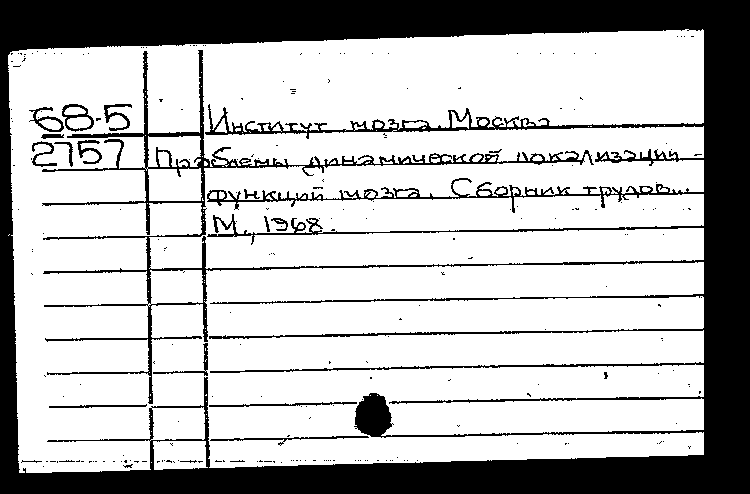 68-5 Институт мозга. Москва
2757 Проблемы динамической локализации -
функций мозга. Сборник трудов...
М., 1968.